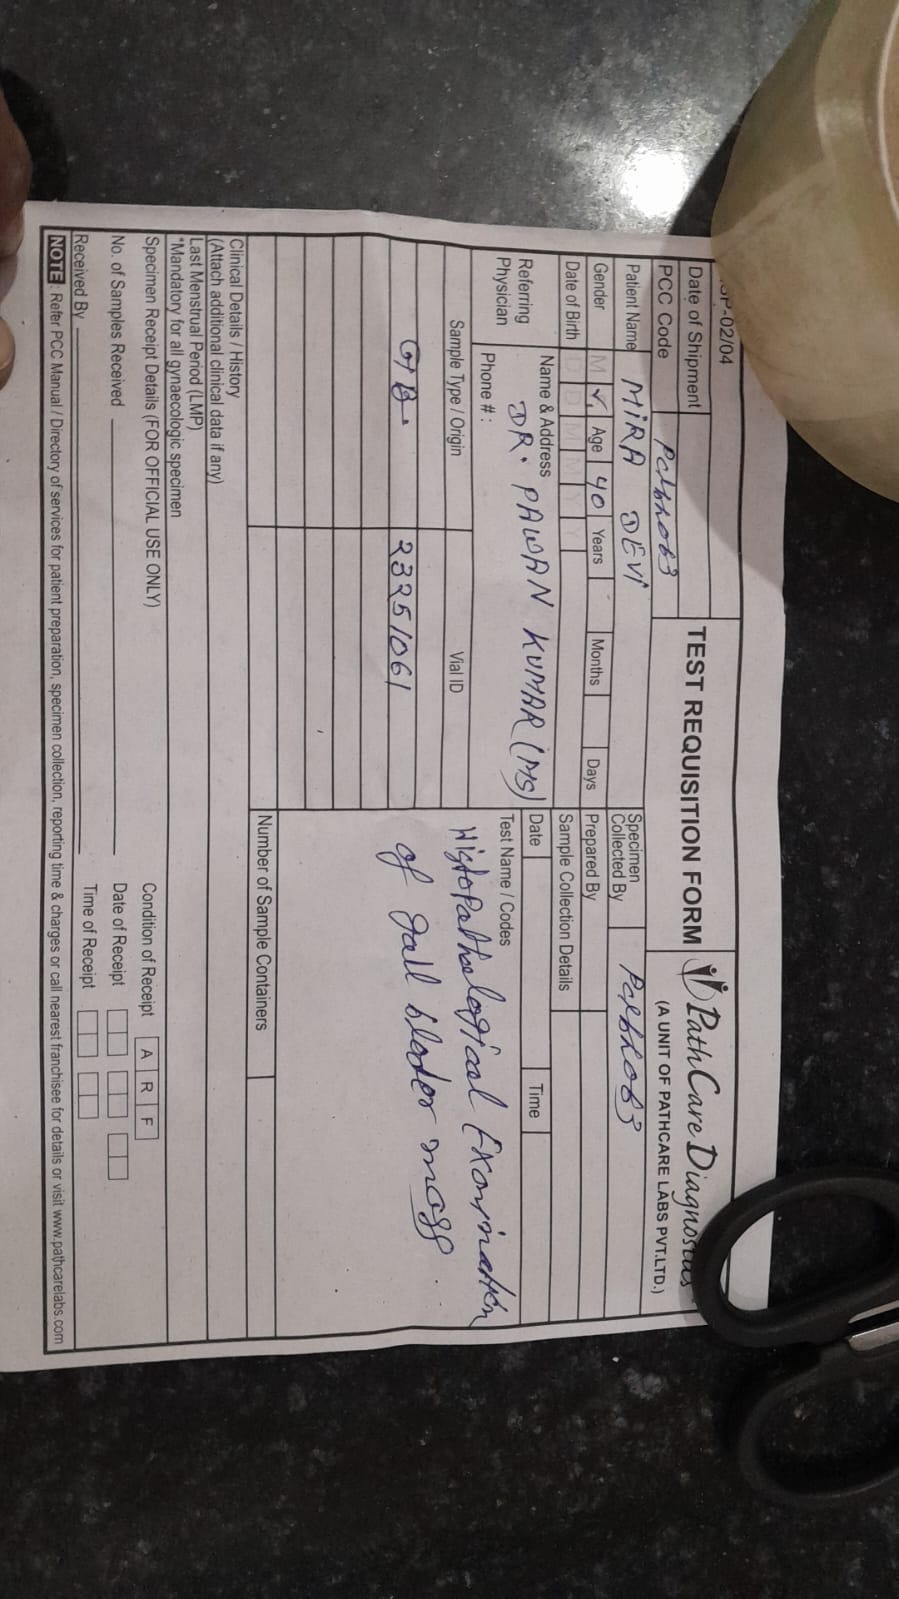 SP-02/04
Date of Shipment
TEST REQUISITION FORM
PathCare Diagnostics
(A UNIT OF PATHCARE LABS PVT.LTD.)
PCC Code
Patient Name MIRA DEVI
Specimen Collected By
Gender M Age 40 Years Months Days
Prepared By
Date of Birth D D M M Y Y
Sample Collection Details
Referring Physician
Name & Address DR. PAWAN KUMAR (MS)
Phone # :
Date Time
Test Name / Codes
Histopathological Examination
of gall blader mass
Sample Type / Origin Vial ID
GB. 23251061
Number of Sample Containers
Clinical Details / History
(Attach additional clinical data if any)
Last Menstrual Period (LMP)
*Mandatory for all gynaecologic specimen
Specimen Receipt Details (FOR OFFICIAL USE ONLY)
Condition of Receipt A R F
No. of Samples Received
Date of Receipt
Received By
Time of Receipt
NOTE : Refer PCC Manual / Directory of services for patient preparation, specimen collection, reporting time & charges or call nearest franchisee for details or visit www.pathcarelabs.com